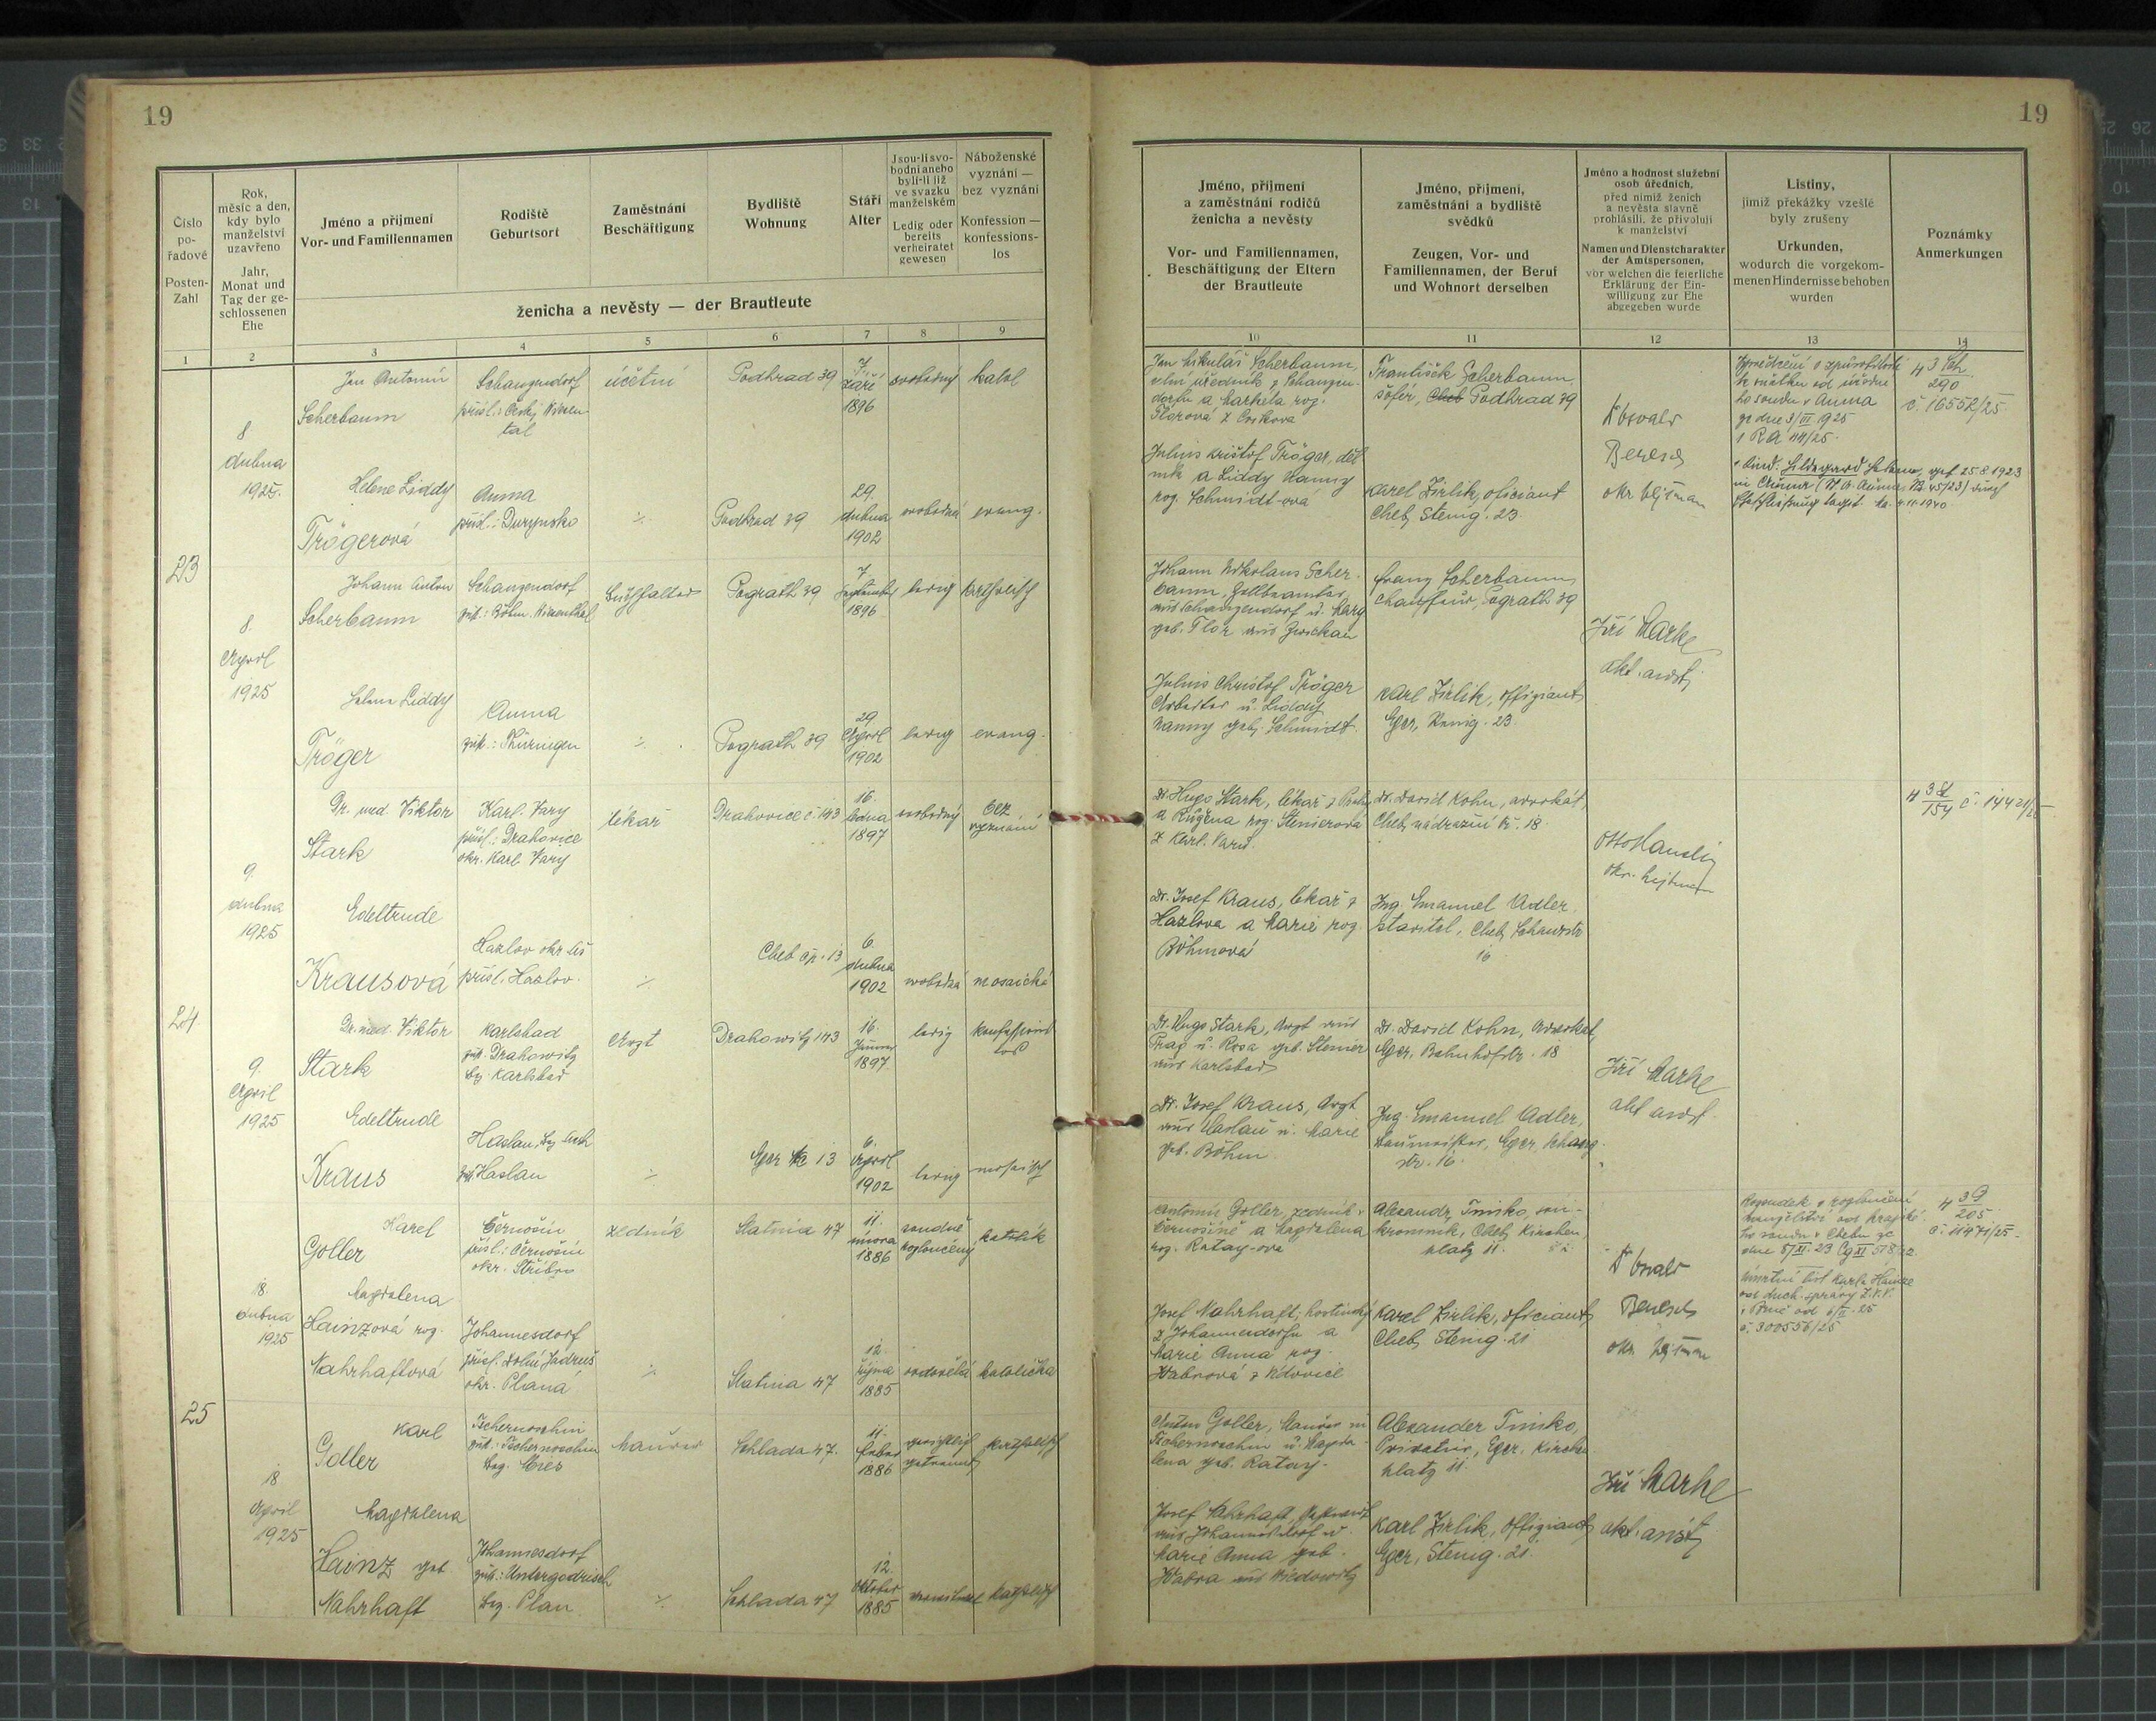 19
19
Číslo
po-
řadové
Posten-
Zahl
Rok,
měsíc a den,
kdy bylo
manželství
uzavřeno
Jahr,
Monat und
Tag der ge-
schlossenen
Ehe
Jméno a příjmení
Vor- und Familiennamen
Rodiště
Geburtsort
Zaměstnání
Beschäftigung
Bydliště
Wohnung
Stáří
Alter
Jsou-li svo-
bodni anebo
byli-li již
ve svazku
manželském
Ledig oder
bereits
verheiratet
gewesen
Náboženské
vyznání —
bez vyznání
Konfession —
konfessions-
los
ženicha a nevěsty — der Brautleute
1 2 3 4 5 6 7 8 9
Jméno, příjmení
a zaměstnání rodičů
ženicha a nevěsty
Vor- und Familiennamen,
Beschäftigung der Eltern
der Brautleute
Jméno, příjmení,
zaměstnání a bydliště
svědků
Zeugen, Vor- und
Familiennamen, der Beruf
und Wohnort derselben
Jméno a hodnost služební
osob úředních,
před nimiž ženich
a nevěsta slavně
prohlásili, že přivolují
k manželství
Namen und Dienstcharakter
der Amtspersonen,
vor welchen die feierliche
Erklärung der Ein-
willigung zur Ehe
abgegeben wurde
Listiny,
jimiž překážky vzešlé
byly zrušeny
Urkunden,
wodurch die vorgekom-
menen Hindernisse behoben
wurden
Poznámky
Anmerkungen
10 11 12 13 14
8
dubna
1925.
Jan Antonín
Scherbaum
Schangendorf
přísl.: Český Wiesen-
tal
účetní
Podhrad 39
7.
září
1896
svobodný
katol
Helene Liddy
Trögerová
Auma
přísl.: Durynsko
Podhrad 39
29.
dubna
1902
svobodná
evang.
Jan Mikuláš Scherbaum,
úředník z Schangen-
dorfu a Markéta roz.
Flórová z Cvikova
Julius Krištof Tröger, děl
ník a Liddy Nanny
roz. Schmidt-ová
František Scherbaum,
šofér, Podhrad 39
Karel Zirlik, oficiant
Cheb, Steing. 23.
Benesch
okr. hejtman
od
soudu v Auma
ze dne 3/III 1925
1 Ra 44/25.
1 Kind: Hildegard Helene, geb. 25.8.1923
in Auma
4 3 Sch
290
č. 16552/25
23
8.
April
1925
Johann Anton
Scherbaum
Schangendorf
zust.: Böhm. Wiesenthal
Buchhalter
Pograth 39
7
September
1896
ledig
katholisch
Helene Liddy
Tröger
Auma
zust.: Thüringen
Pograth 39
29
April
1902
ledig
evang.
Johann Nikolaus Scher-
baum, Zollbeamter,
aus Schangendorf u. Marg
geb. Flor aus Zwickau
Julius Christof Tröger
Arbeiter u. Liddy
Nanny geb. Schmidt.
Franz Scherbaum,
Chauffeur, Pograth 39
Karl Zirlik, Offiziant,
Eger, Steinig. 23.
Jiří Marke
9.
dubna
1925
Dr. med. Viktor
Stark
Karl. Vary
přísl.: Drahovice
okr. Karl. Vary
lékař
Drahovice č. 143
16.
ledna
1897
svobodný
bez
vyznání
Edeltrude
Krausová
Hazlov okr. Aš
přísl. Hazlov.
Cheb čp. 13
6.
dubna
1902
svobodná
mosaické
Dr. Hugo Stark, lékař z Prahy
a Růžena roz. Steinerová
z Karl. Varů.
Dr. Josef Kraus, lékař z
Hazlova a Marie roz.
Böhmová
Dr. David Kohn, advokát,
Cheb, nádražní tř. 18.
Ing. Emanuel Adler
stavitel, Cheb, Schanzstr
16
okr. hejtman
154 č. 14421/25
24
9.
April
1925
Dr. med. Viktor
Stark
Karlsbad
zust. Drahowitz
Bez. Karlsbad
Arzt
Drahowitz 143
16.
Jänner
1897
ledig
konfessions
los
Edeltrude
Kraus
Haslau, Bez. Asch
zust. Haslau
Eger 13
6.
April
1902
ledig
mosaisch
Dr. Hugo Stark, Arzt aus
Prag u. Rosa geb. Steiner
aus Karlsbad
Dr. Josef Kraus, Arzt
aus Haslau u. Marie
geb. Böhm.
Dr. David Kohn, Advokat,
Eger, Bahnhofstr. 18
Ing. Emanuel Adler,
Baumeister, Eger, Schanz-
str. 16.
Jiří Marke
18.
dubna
1925
Karel
Goller
Černošín
přísl.: Černošín
okr. Stříbro
zedník
Slatina 47
11.
února
1886
soudně
rozloučený
katolík
Magdalena
Hainzová roz.
Nahrhaftová
Johannesdorf
přísl. Dolní Jadruž
okr. Planá
Slatina 47
12.
října
1885
ovdovělá
katolička
Antonín Goller, zedník v
Černošíně a Magdalena
roz. Ratay-ová
Josef Nahrhaft, hostinský
z Johannesdorfu a
Marie Anna roz.
Wabrová z
Alexandr Tinisko, sou-
kromník, Cheb, Kirchen-
platz 11.
Karel Zirlik, oficiant,
Cheb, Steing. 21
Benesch
okr. hejtman
Rozsudek o rozloučení
manželství od krajské-
ho soudu v Chebu ze
dne 5/XI. 23
Úmrtní list Karla Hainze
od duch. správy
č. 300556/25
4 3 G
205
č. 11471/25.
25
18
April
1925
Karl
Goller
Tschernoschin
zust.: Tschernoschin
Bez. Mies
Maurer
Schlada 47.
11.
Feber
1886
gerichtlich
getrennt
katholisch
Magdalena
Hainz geb
Nahrhaft
Johannesdorf
zust.: Untergodrisch
Bez. Plan
Schlada 47
12.
Oktober
1885
verwitwet
katholisch
Anton Goller, Maurer in
Tschernoschin u. Magda-
lena geb. Ratay.
Josef Nahrhaft, Gastwirt
aus Johannesdorf u.
Marie Anna geb.
Wabra aus
Alexander Tinisko,
Privatier, Eger, Kirchen
platz 11.
Karl Zirlik, Offiziant,
Eger, Steing. 21.
Jiří Marke